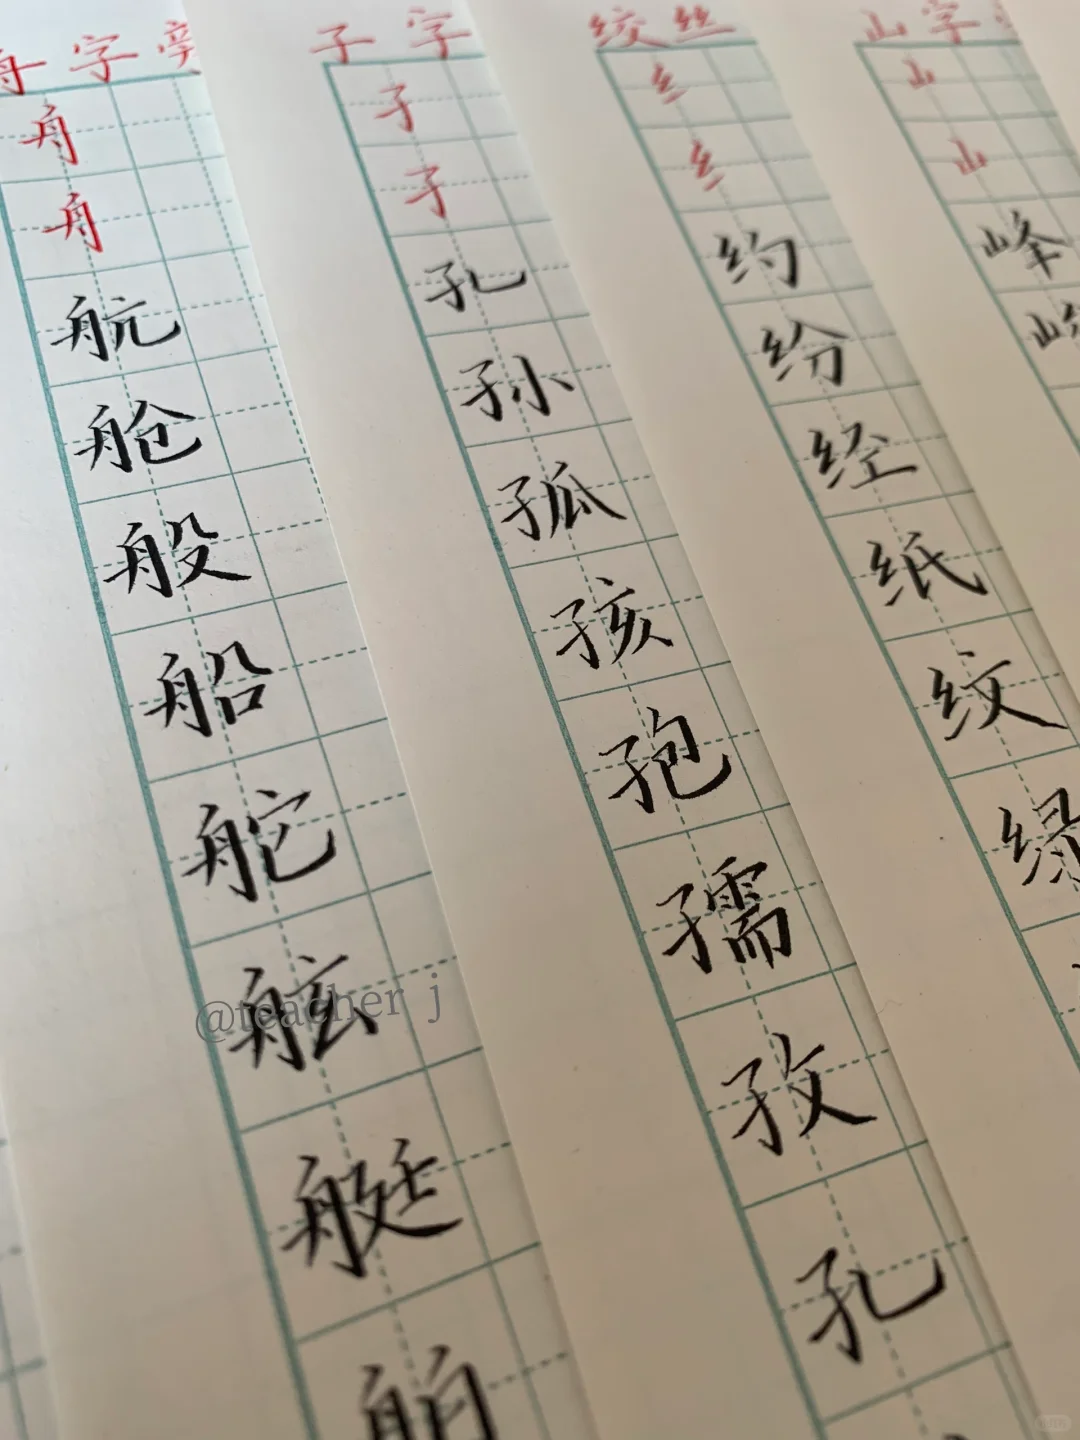 舟字旁
舟
舟
航
舱
般
船
舵
舷
艇
舶
子字
子
子
孔
孙
孤
孩
孢
孺
孜
孔
绞丝
纟
纟
约
纷
经
纸
纹
绿
山字
山
山
峰
@teacher j